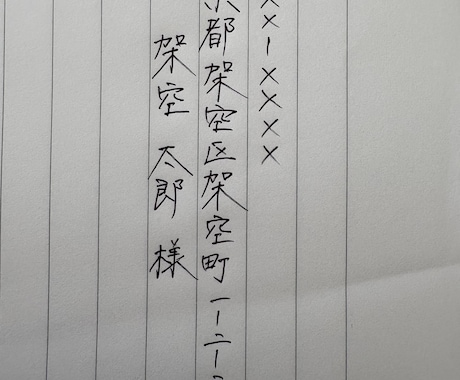 ××-××××
京都架空区架空町一-二-
架空 太郎 様